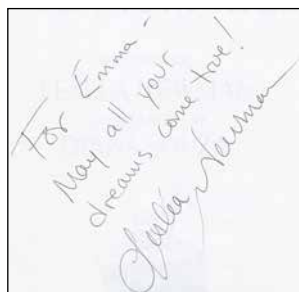 For Emma -
May all your
dreams come true!
Lesléa Newman